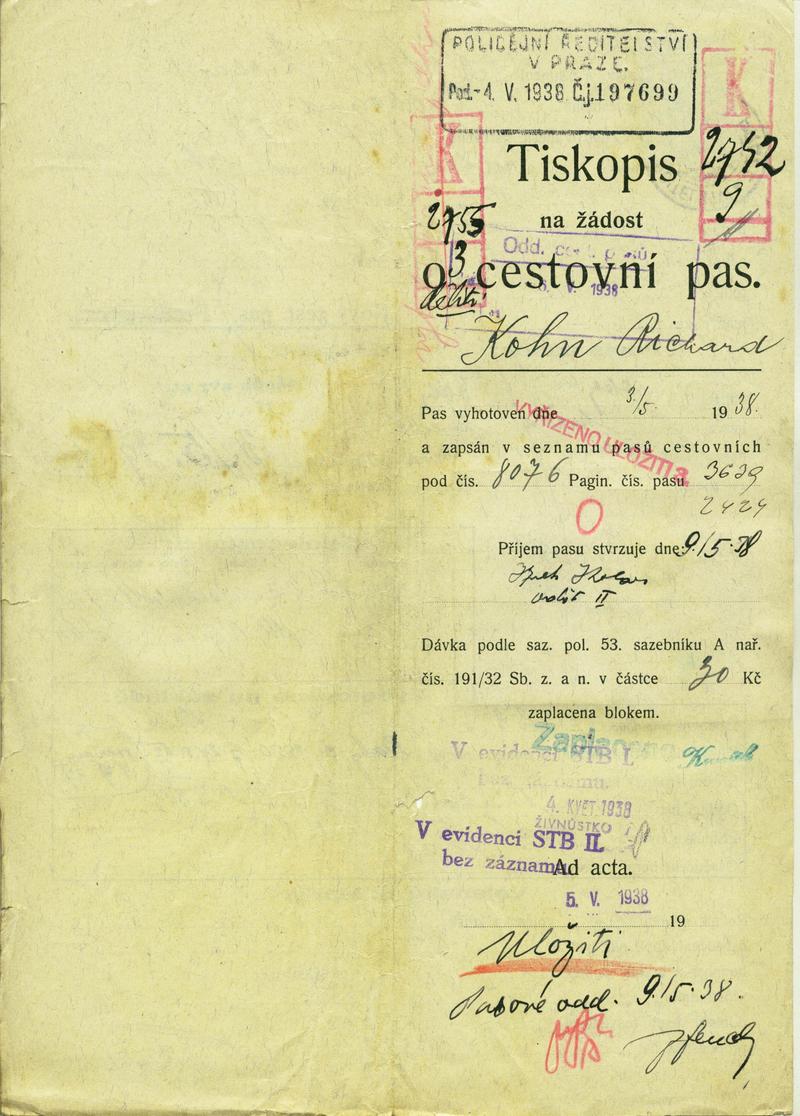 POLICEJNÍ ŘEDITELSTVÍ
V PRAZE.
Pod.- 4. V. 1938 Č.j. 197699
K
K
Tiskopis
2752
9
2755
3
na žádost
Odd.
o cestovní pas.
V. 1938
Kohn Richard
Pas vyhotoven dne 3/5 1938.
VYŘÍZENO ULOŽITI
a zapsán v seznamu pasů cestovních
pod čís. 8076 Pagin. čís. pasu 3639
2424
O
Příjem pasu stvrzuje dne: 9/5·38
II
Dávka podle saz. pol. 53. sazebníku A nař.
čís. 191/32 Sb. z. a n. v částce 30 Kč
zaplacena blokem.
Zaplaceno
V evidenci STB I.
bez záznamu.
4. KVĚT. 1938
V evidenci STB II.
bez záznamu
Ad acta.
5. V. 1938
19
Uložiti
Pasové odd. 9/5·38.